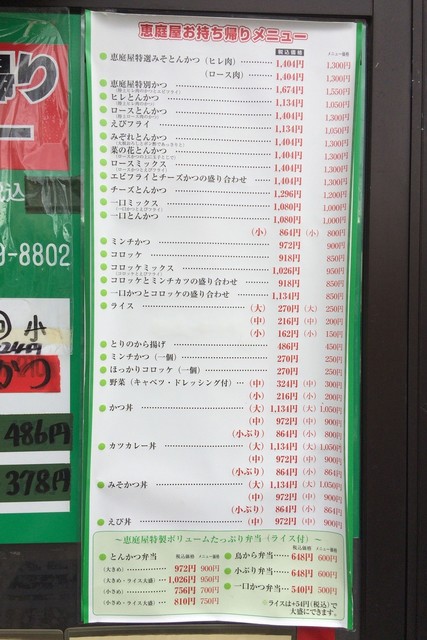 恵庭屋お持ち帰りメニュー
税込価格 メニュー価格
恵庭屋特選みそとんかつ（ヒレ肉）… 1,404円 1,300円
（ロース肉）… 1,404円 1,300円
恵庭屋特別かつ… 1,674円 1,550円
ヒレとんかつ… 1,134円 1,050円
ロースとんかつ… 1,404円 1,300円
えびフライ… 1,134円 1,050円
みぞれとんかつ… 1,404円 1,300円
菜の花とんかつ… 1,404円 1,300円
ロースミックス… 1,404円 1,300円
エビフライとチーズかつの盛り合わせ… 1,404円 1,300円
チーズとんかつ… 1,296円 1,200円
一口ミックス… 1,080円 1,000円
一口とんかつ… 1,080円 1,000円
（小） 864円 （小） 800円
ミンチかつ… 972円 900円
コロッケ… 918円 850円
コロッケミックス… 1,026円 950円
コロッケとミンチカツの盛り合わせ… 918円 850円
一口かつとコロッケの盛り合わせ… 1,134円 850円
ライス… （大） 270円 （大） 250円
（中） 216円 （中） 200円
（小） 162円 （小） 150円
とりのから揚げ… 486円 450円
ミンチかつ（一個）… 270円 250円
ほっかりコロッケ（一個）… 270円 250円
野菜（キャベツ・ドレッシング付）… （中） 324円 （中） 300円
（小） 216円 （小） 200円
かつ丼… （大） 1,134円 （大） 1,050円
（中） 972円 （中） 900円
（小ぶり） 864円 （小） 800円
カツカレー丼… （大） 1,134円 （大） 1,050円
（中） 972円 （中） 900円
（小ぶり） 864円 （小） 864円
みそかつ丼… （大） 1,134円 （大） 1,050円
（中） 972円 （中） 900円
（小ぶり） 864円 （小） 864円
えび丼… （中） 972円 （中） 900円
〜恵庭屋特製ボリュームたっぷり弁当（ライス付）〜
とんかつ弁当 税込価格 メニュー価格
（大きめ）… 972円 900円
（大きめ・ライス大盛）… 1,026円 950円
（小さめ）… 756円 700円
（小さめ・ライス大盛）… 810円 750円
税込価格 メニュー価格
鳥から弁当… 648円 600円
小ぶり弁当… 648円 600円
一口かつ弁当… 540円 500円
※ライスは+54円（税込）で
大盛にできます。
り
ー
込
9-8802
小
かつ
486円
378円